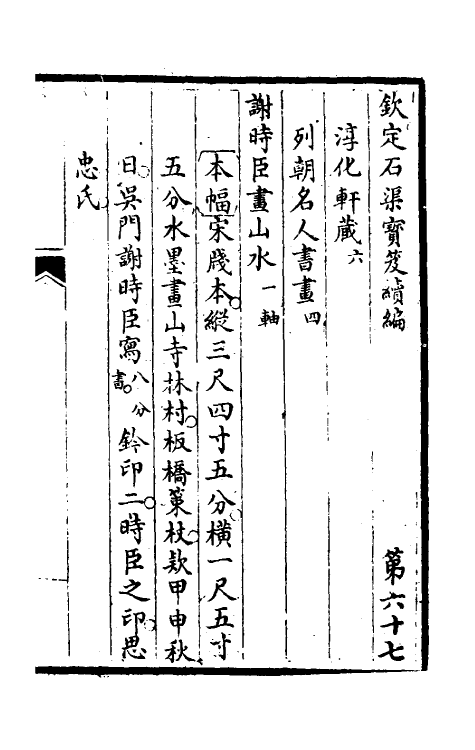 欽定石渠寶笈續編 第六十七
淳化軒藏六
列朝名人書畫四
謝時臣畫山水一軸
本幅宋牋本縱三尺四寸五分橫一尺五寸
五分水墨畫山寺林村板橋策杖款甲申秋
日吳門謝時臣寫八分書鈐印二時臣之印思
忠氏